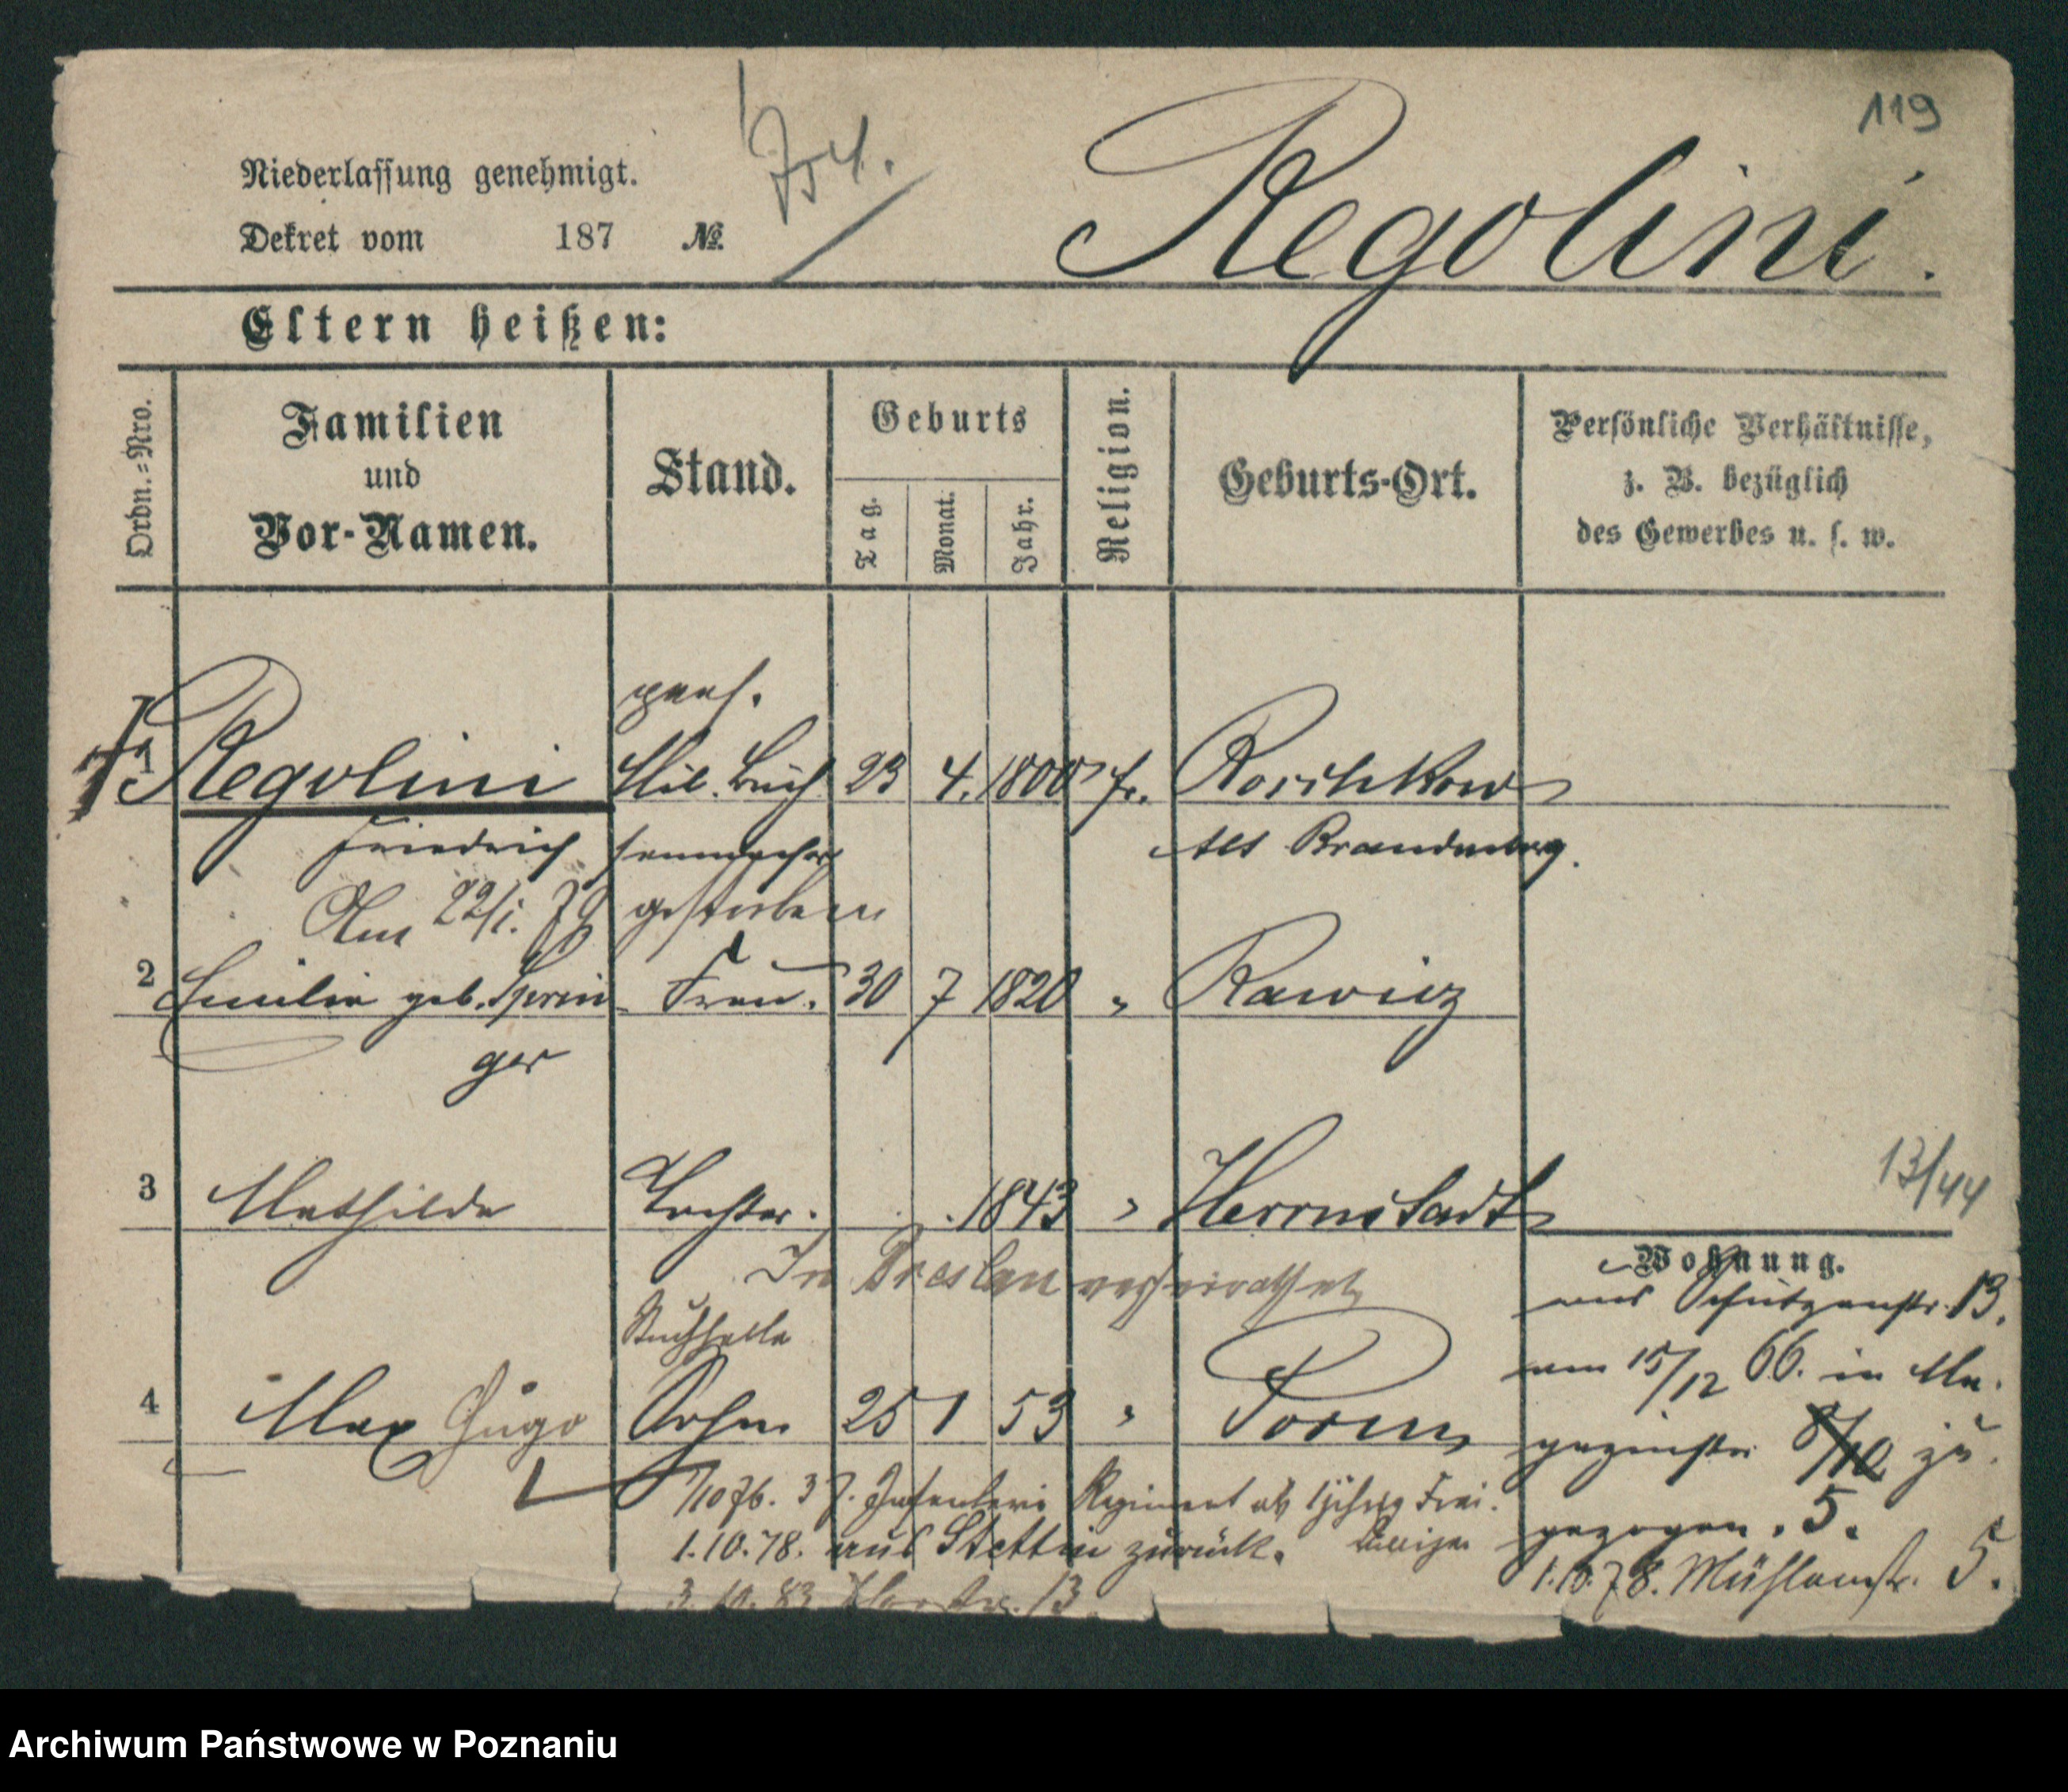 119
Niederlassung genehmigt.
Dekret vom 187 №
Regolini.
Eltern heißen:
Ordn.=Nro.
Familien
und
Vor-Namen.
Stand.
Geburts
Tag.
Monat.
Jahr.
Religion.
Geburts-Ort.
Persönliche Verhältnisse,
z. B. bezüglich
des Gewerbes u. s. w.
pens.
1 Regolini Mil. Büch 23 4. 1800 fr.
Friedrich senmacher Alt Brandenburg.
Am 22/1. 79 gestorben
2 Emilie geb. Sprin Frau. 30 7 1820 " Rawicz
ger
3 Mathilde Tochter. 1843 " Herrnstadt
13/44
In Breslau verheirathet
Wohnung.
aus Schützenstr. 13.
Buchhalte
am 15/12 66. in Ma
4 Max Hugo Sohn 25 1 53 " Posen
gazinstr. 8/10 zu
1/10 76. 37. Infanterie Regiment als 1jährig Frei
gezogen. 5.
1.10.78. aus Stettin zurück. williger
1.10.78. Mühlenstr. 5.
3.10.83 13
Archiwum Państwowe w Poznaniu